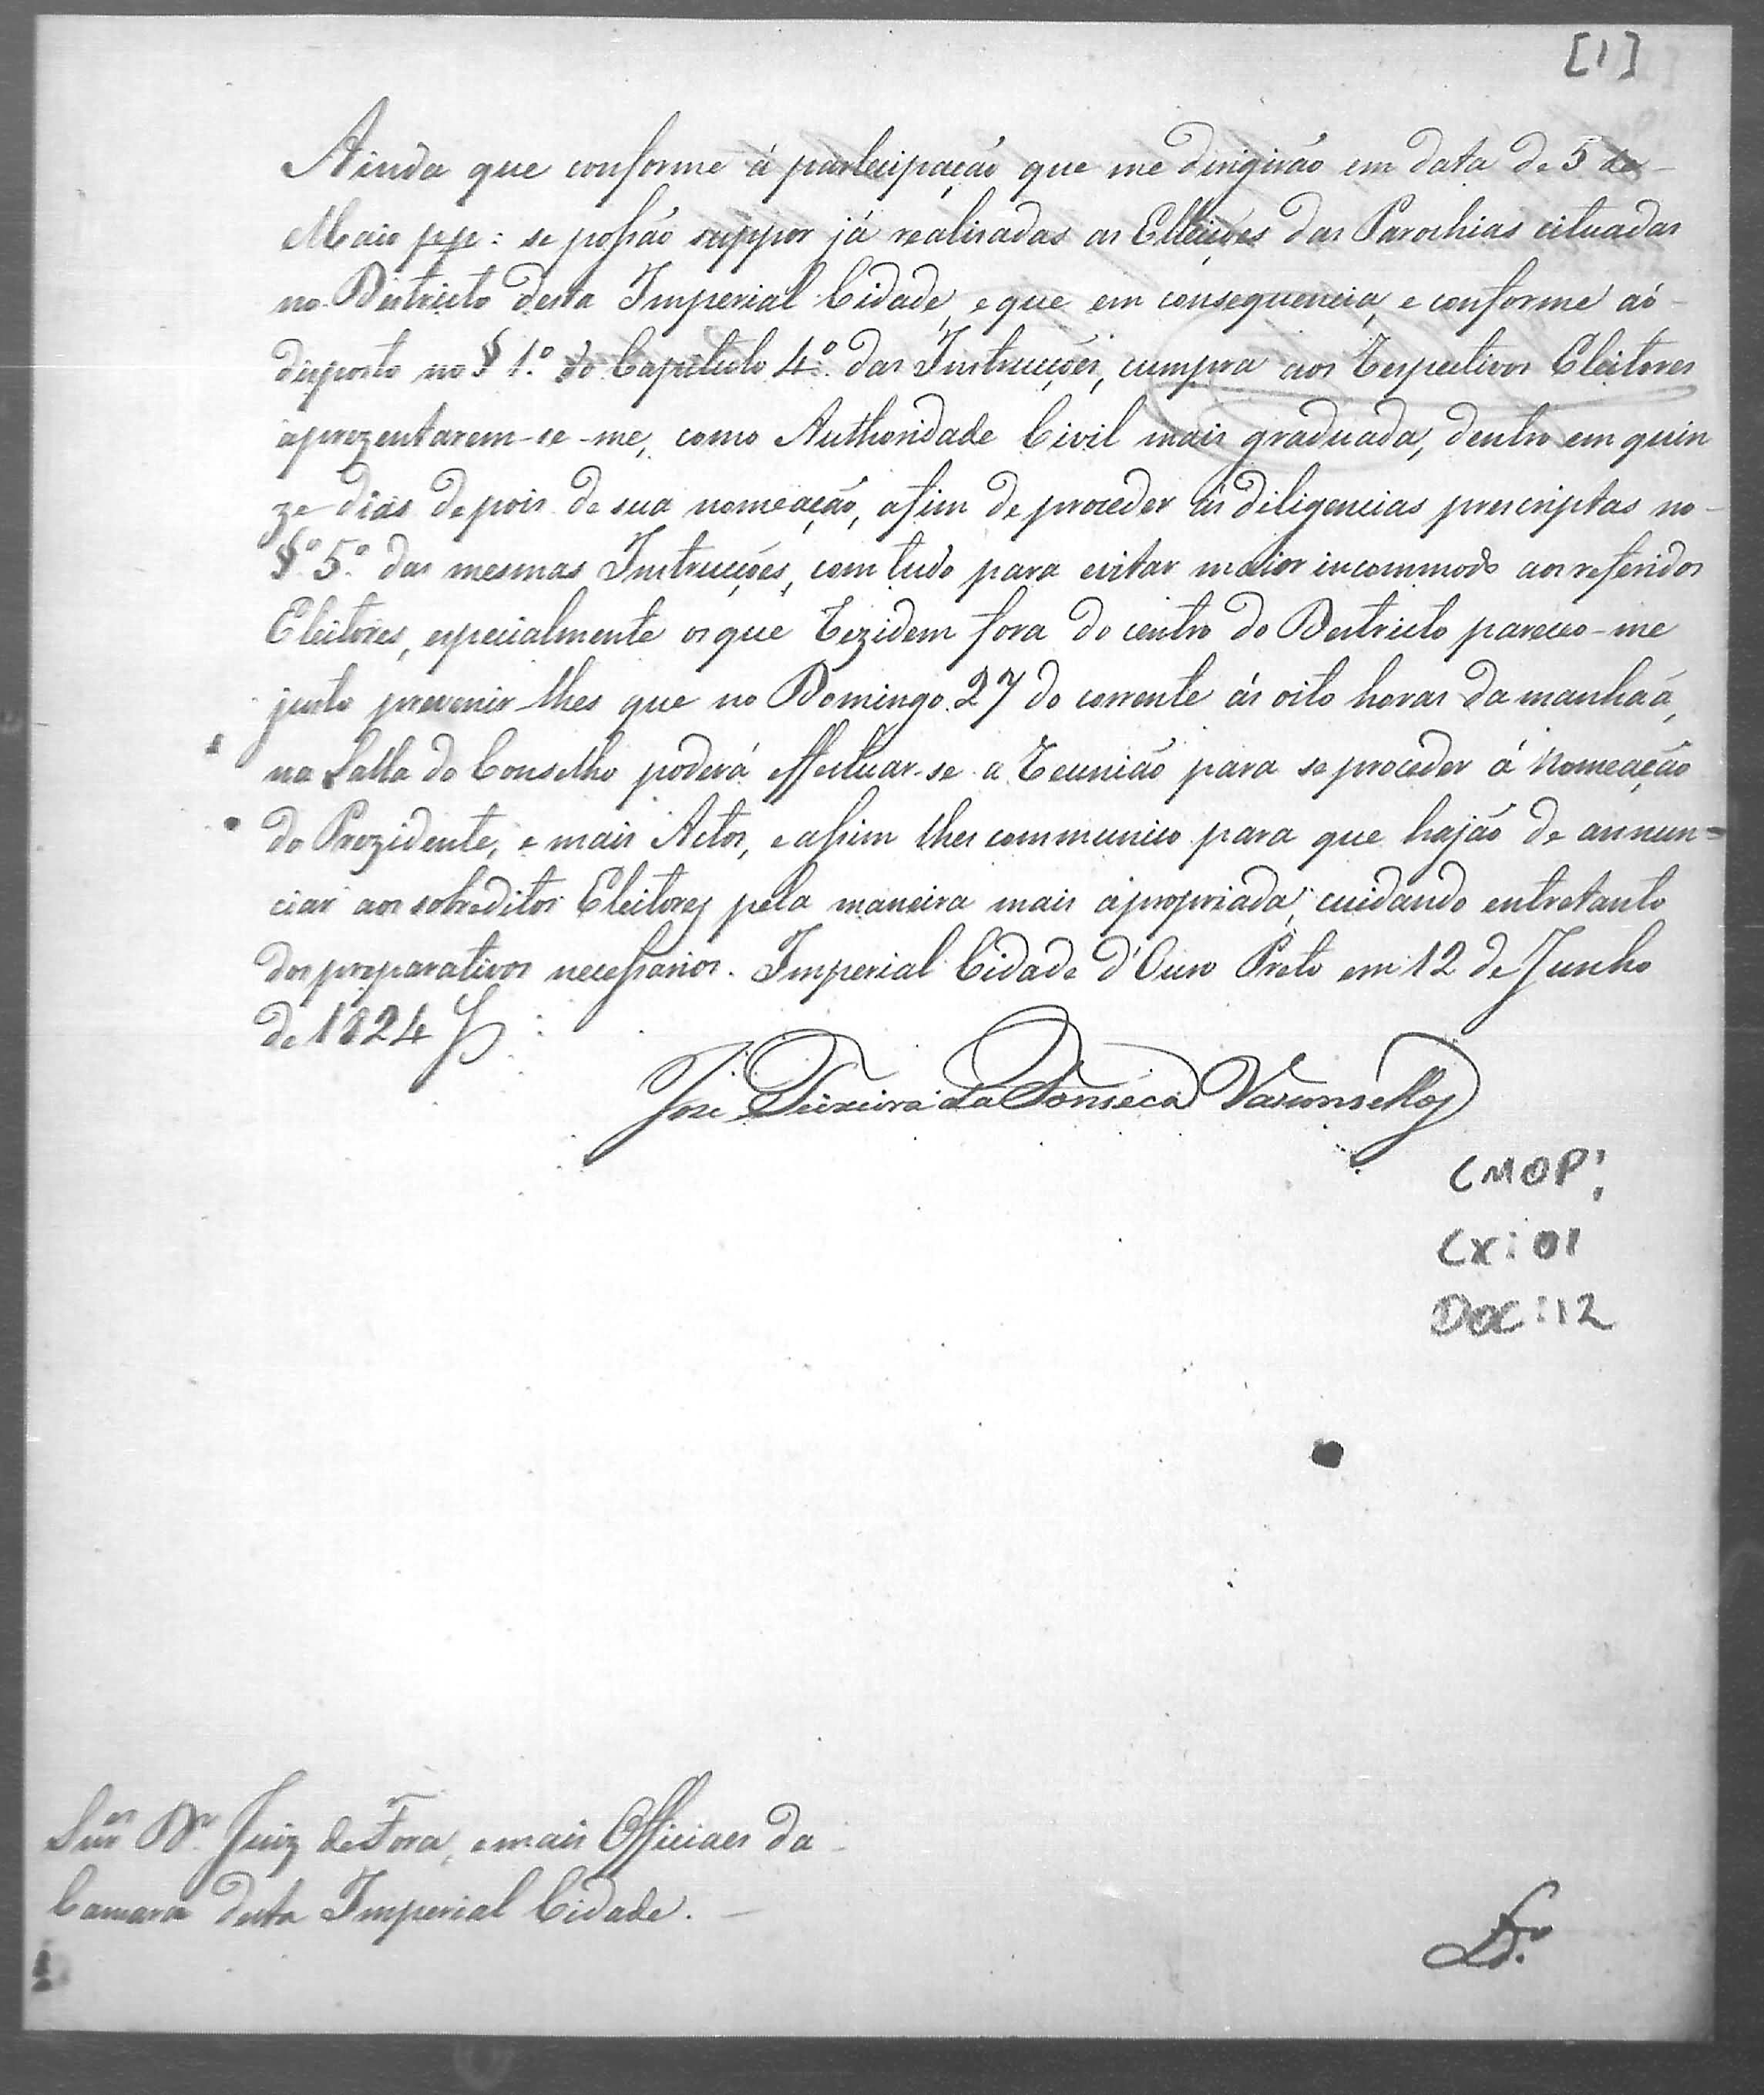 [1]
Ainda que conforme á participação que me dirigirão em data de 5 de
Maio pp: se possão suppor já realisadas as Elleições das Parochias cituadas
no Districto desta Imperial Cidade, e que em consequencia, e conforme aó
disposto no § 1.º do Capitulo 4.º das Instrucções, cumpra aos Respectivos Eleitores
aprezentarem-se-me, como Authoridade Civil mais graduada, dentro em quin
ze dias depois de sua nomeação, afim de proceder ás diligencias prescriptas no
§º 5º das mesmas Instrucções, com tudo para evitar maior incommodo aos referidos
Eleitores, especialmente os que Rezidem fora do centro do Destricto pareceo-me
justo prevenir-lhes que no Domingo 27 do corrente ás oito horas da manhaã,
na Salla do Conselho poderá effectuar-se a Reunião para se proceder á Nomeação
do Prezidente, e mais Actos, e assim lhes communico para que hajão de annun-
ciar aos sobreditos Eleitores pela maneira mais apropriada, cuidando entretanto
dos preparativos necessarios. Imperial Cidade d'Ouro Preto em 12 de Junho
de 1824
José Teixeira da Fonseca Vasconsellos
CMOP:
Cx: 01
Doc: 12
Snr.es Dr. Juiz de Fora, e mais Officiaes da
Camara desta Imperial Cidade.